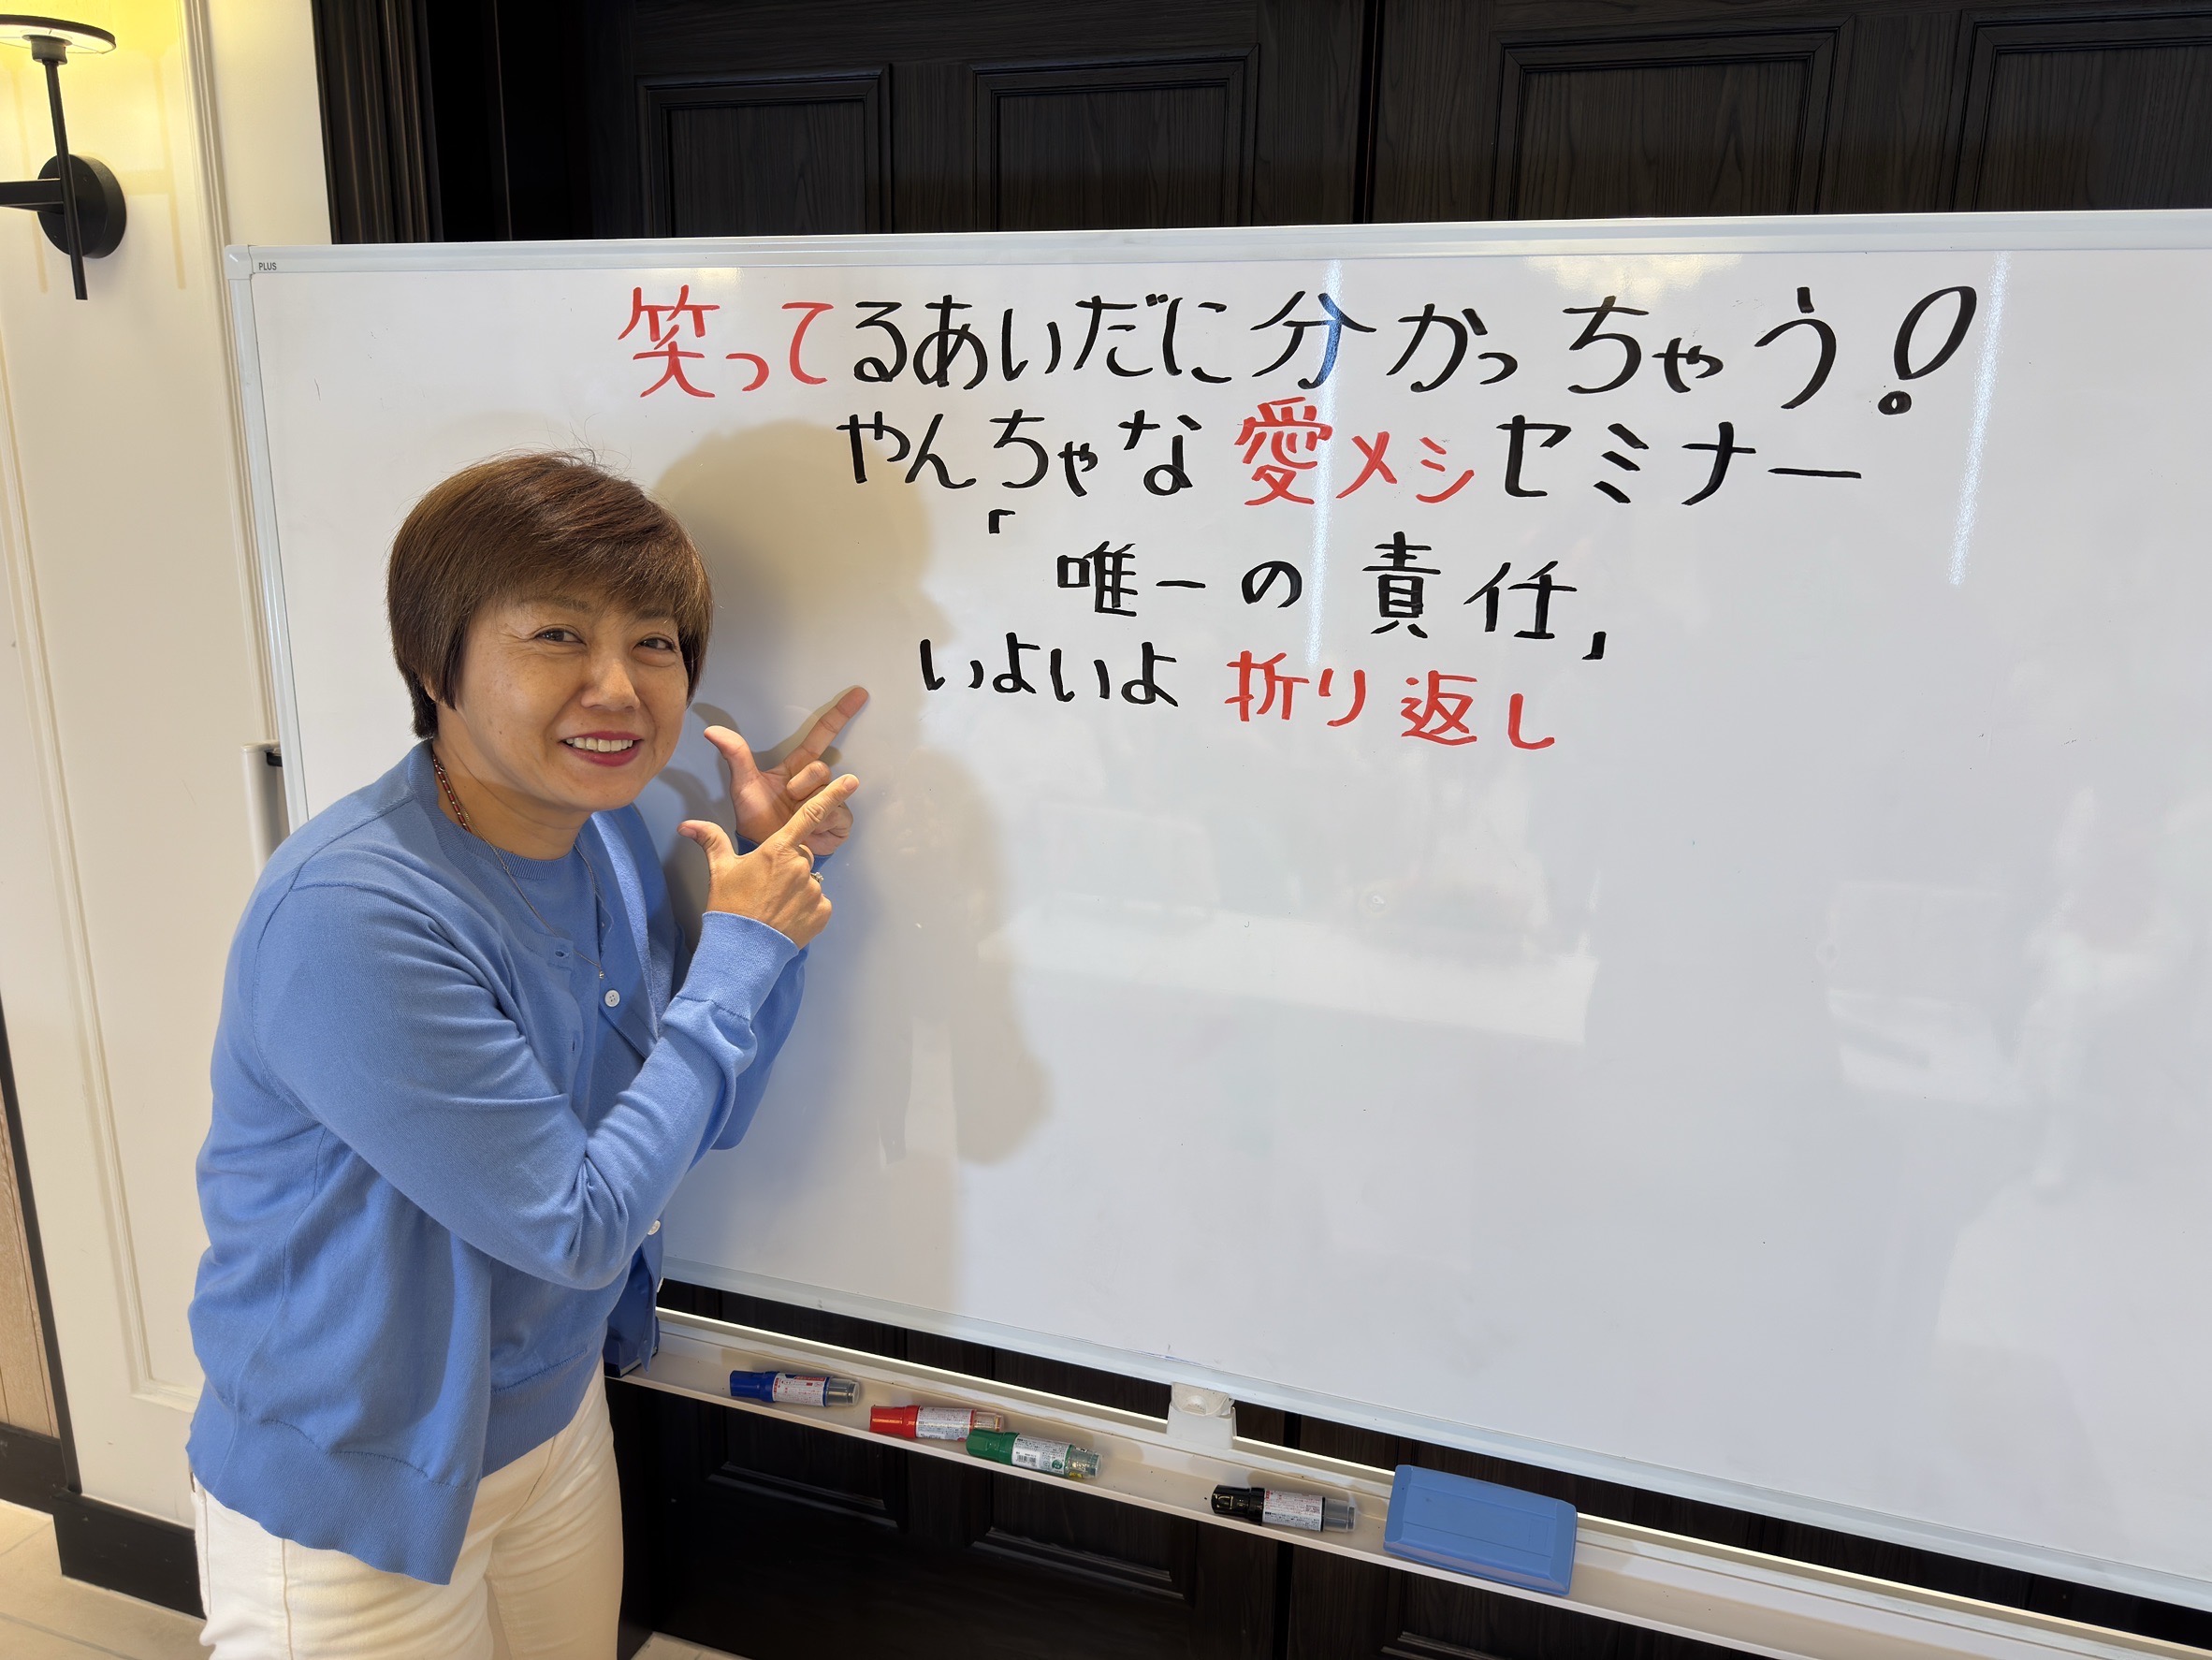 PLUS
笑ってるあいだに分かっちゃう!
やんちゃな愛メシセミナー
「唯一の責任」
いよいよ折り返し